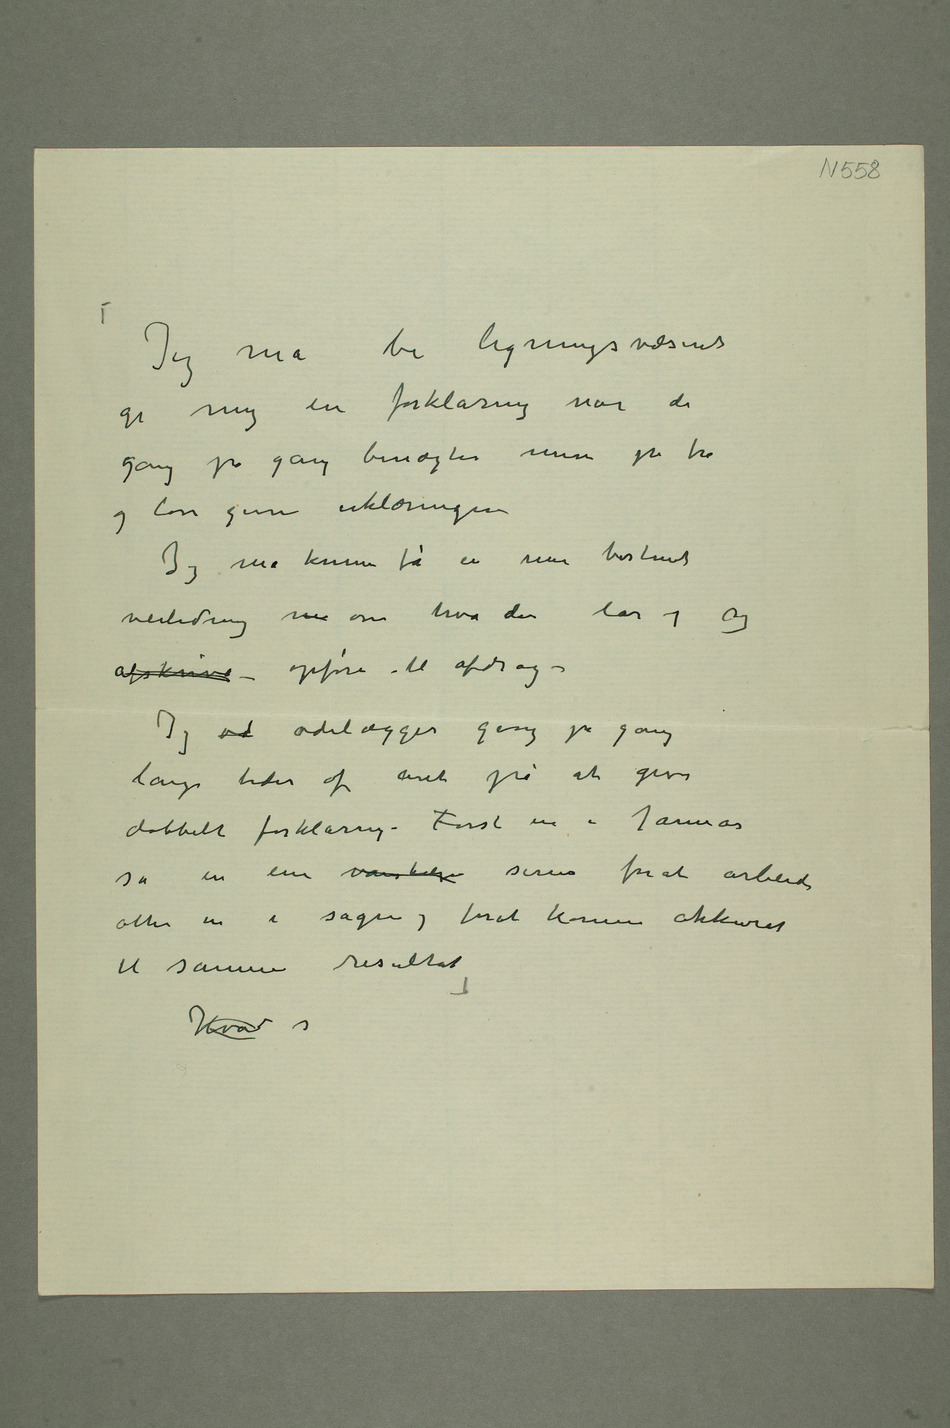 N558
Jeg må be ligningsvæsenet
gi mig en forklaring når de
gang på gang benægter mine på tro
og love givne erklæringer
Jeg må kunne få en mer bestemt
veiledning om hva der lar
afskrive – opføre til afdrag –
Jeg ød ødelægger gang på gang
lange tider af året på at give
dobbelt forklaring – Først en i Januar
så en en vanskelig senere for at arbeide
atter en i sagen og for at komme akkurat
til samme resultat
Hvad s